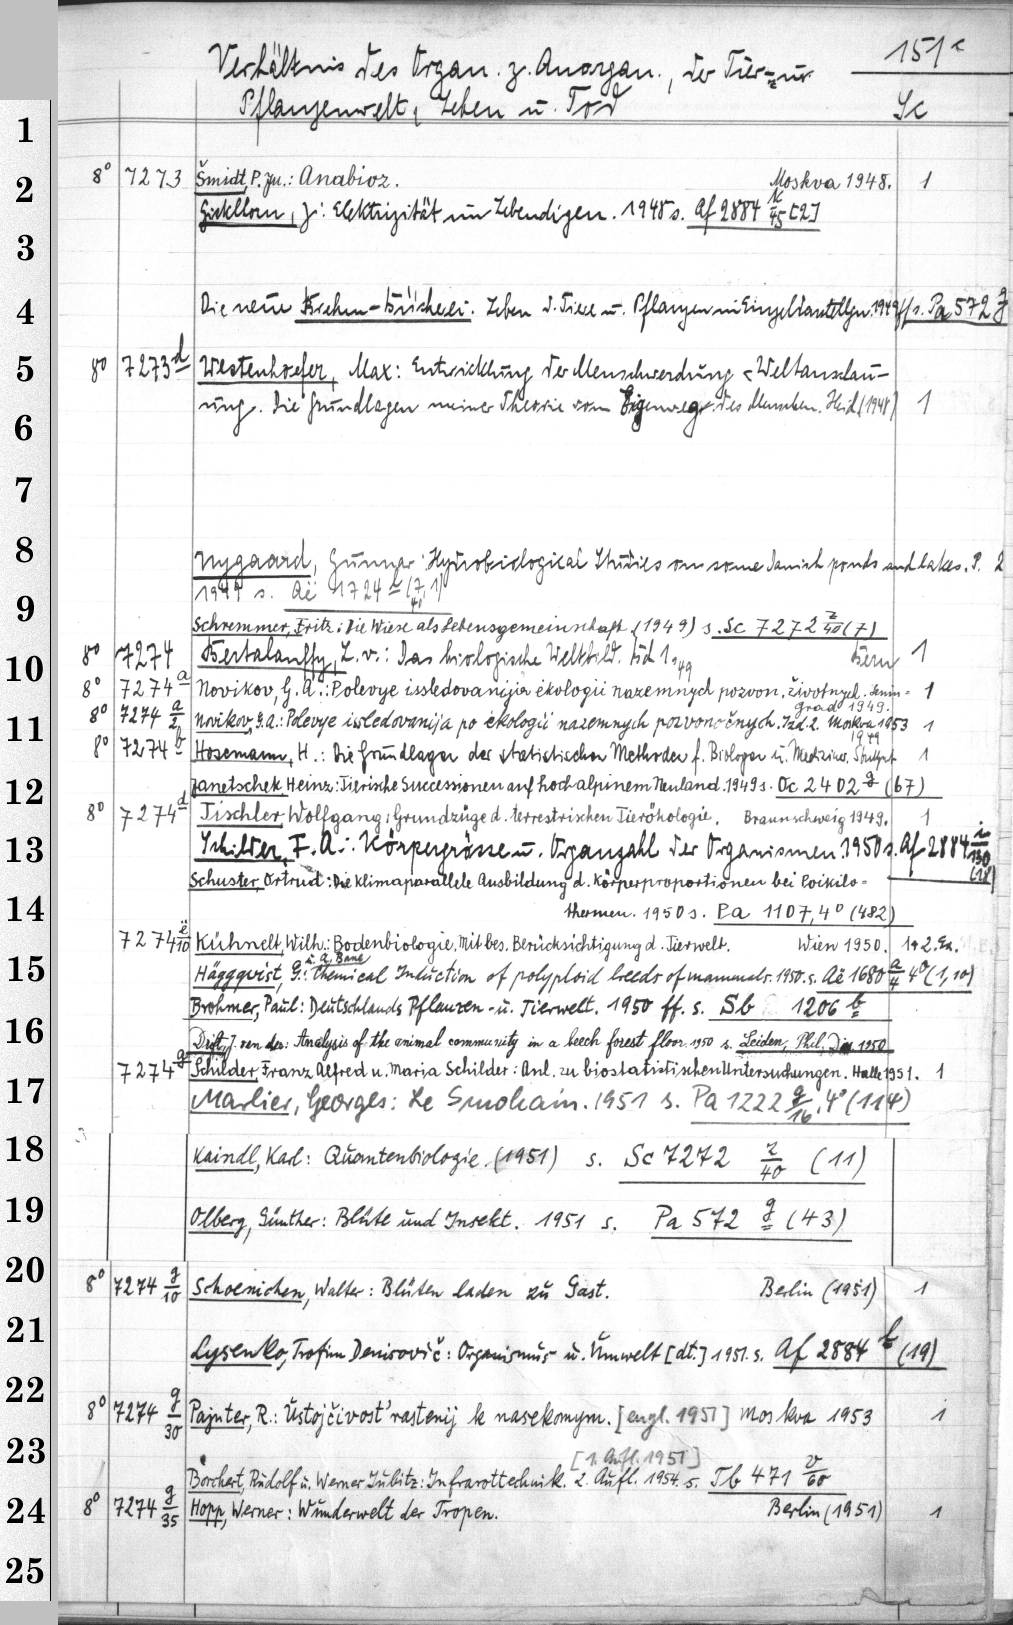 151c
Verhältnis des Organ. z. Anorgan., der Tier- zur
Pflanzenwelt, Leben u. Tod
Sc
1
8° 7273 Šmidt, P. Ju.: Anabioz. Moskva 1948. 1
2
Gicklhorn, J.: Elektrizität im Lebendigen. 1948 s. Af 2884 k/45 [2]
3
Die neue Brehm-Bücherei. Leben d. Tiere u. Pflanzen in Einzeldarstellgn. 1949 ff s. Pa 572 g
4
5
8° 7273 d Westenhoefer, Max: Entwicklung der Menschwerdung < Weltanschau-
ung. Die Grundlagen meiner Theorie vom Eigenweg des Menschen. Heid (1948) 1
6
7
8
Nygaard, Gunnar: Hydrobiological Studies on some Danish ponds and lakes. P. 2
1949 s. Aë 1724 (7,1)
9
Schremmer, Fritz: Die Wiese als Lebensgemeinschaft (1949) s. Sc 7272 z/40 (7)
8° 7274 Bertalanffy, L. v.: Das biologische Weltbild. Bd 1. 49 Bern 1
10
8° 7274 a Novikov, G. A.: Polevye issledovanija ėkologii nazemnych pozvon. životnych. Lenin-
grad 1949. 1
8° 7274 a/2 Novikov, G. A.: Polevye issledovanija po ėkologii nazemnych pozvonočnych. Izd. 2. Moskva 1953 1
11
8° 7274 b Hosemann, H.: Die Grundlagen der statistischen Methoden f. Biologen u. Mediziner. Stuttgt 1949 1
12
Janetschek, Heinz: Tierische Successionen auf hochalpinem Neuland. 1949 s. Oc 2402 g (67)
8° 7274 d Tischler, Wolfgang: Grundzüge d. terrestrischen Tierökologie. Braunschweig 1949. 1
13
Schilder, F. A.: Körpergrösse u. Organzahl der Organismen. 1950 s. Af 2884 i/130 (18)
Schuster, Ortrud: Die klimaparallele Ausbildung d. Körperproportionen bei Poikilo-
14
thermen. 1950 s. Pa 1107, 4° (482)
7274 ë/10 Kühnelt, Wilh.: Bodenbiologie. Mit bes. Berücksichtigung d. Tierwelt. Wien 1950. 1+2. Ex.
15
Häggqvist, G. u. A. Bane: Chemical Induction of polyploid breeds of mammals. 1950. s. Aë 1680 a/4 4° (1,10)
Brohmer, Paul: Deutschlands Pflanzen- u. Tierwelt. 1950 ff. s. Sb 1206 b
16
Drift, J. van der: Analysis of the animal community in a beech forest floor 1950 s. Leiden, Phil. Diss 1950
7274 g Schilder, Franz Alfred u. Maria Schilder: Anl. zu biostatistischen Untersuchungen. Halle 1951. 1
17
Marlier, Georges: Le Smohain. 1951 s. Pa 1222 g/16, 4° (114)
18
Kaindl, Karl: Quantenbiologie. (1951) s. Sc 7272 z/40 (11)
19
Olberg, Günther: Blüte und Insekt. 1951 s. Pa 572 g (43)
20
8° 7274 g/10 Schoenichen, Walter: Blüten laden zu Gast. Berlin (1951) 1
21
Lysenko, Trofim Denisovič: Organismus u. Umwelt [dt.] 1951. s. Af 2884 b (19)
22
8° 7274 g/30 Pajnter, R.: Ustojčivost' rastenij k nasekomym. [engl. 1951] Moskva 1953 1
23
[1. Aufl. 1951]
Borchert, Rudolf u. Werner Jubitz: Infrarottechnik. 2. Aufl. 1954. s. Tb 471 v/60
24
8° 7274 g/35 Hopp, Werner: Wunderwelt der Tropen. Berlin (1951) 1
25